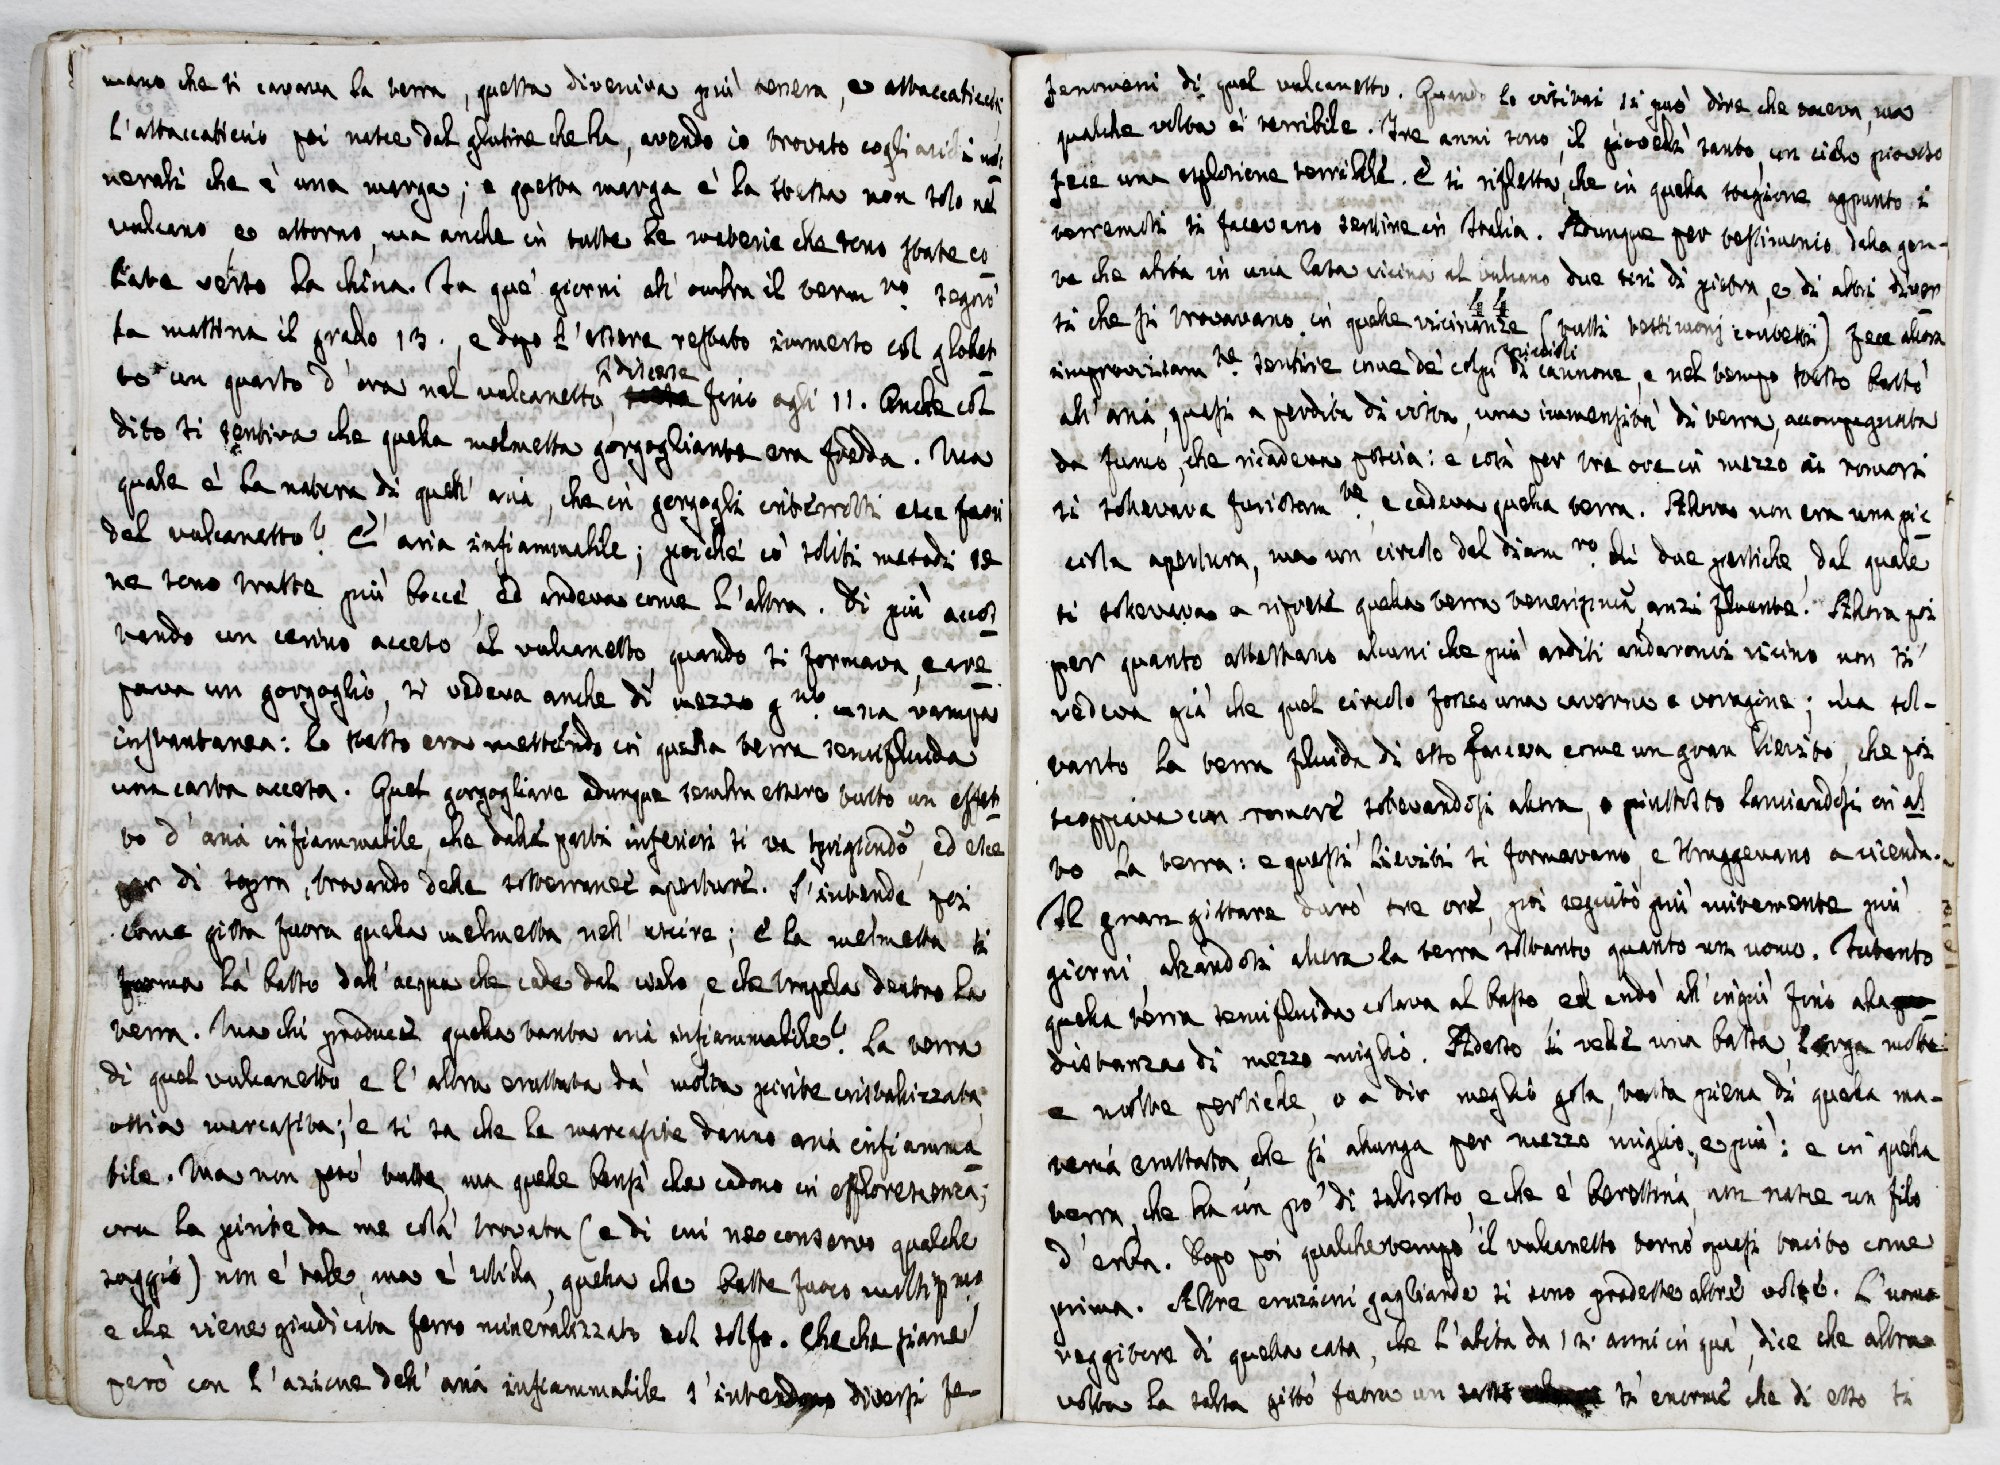 mano che si cavava la terra, questa diveniva più tenera, e attaccaticcia
L'attaccaticcio poi nasce dal glutine che ha, avendo io trovato cogli acidi mi-
nerali che è una marga; e questa marga è la stessa non solo nel
vulcano, e attorno, ma anche in tutte le materie che sono state co-
late verso la china. In que' giorni all'ombra il term.no segnò
la mattina il grado 13., e dopo l'essere restato immerso col globet-
to un quarto d'ora nel vulcanetto, discese fino agli 11. Anche col
dito si sentiva che quella melmetta gorgogliante era fredda. Ma
quale è la natura di quell'aria, che in gorgogli interrotti esce fuori
del vulcanetto? È aria infiammabile; poiché co' soliti metodi se
ne sono tratte più boccé, ed ardeva come l'altra. Di più accos-
tando un cerino acceso al vulcanetto, quando si formava, e cre-
pava un gorgoglio, si vedeva anche di mezzo g.no una vampa
instantanea: lo stesso era mettendo in quella terra semifluida
una carta accesa. Quel gorgogliare adunque sembra essere tutto un effet-
to d'aria infiammabile, che dalle parti inferiori si va sprigiondo, ed esce
per di sopra, trovando delle sotterranee aperture. S'intende poi
come gitta fuora quella melmetta nell'uscire; e la melmetta si
forma là basso dall'acqua che cade dal cielo, e che trapela dentro la
terra. Ma chi produce quella tanta aria infiammabile? La terra
di quel vulcanetto, e l'altra eruttata dà molta pirite cristallizzata,
ossia marcasita; e si sa che le marcasite danno aria infiamma-
bile. Ma non però tutte, ma quelle bensì che cadono in efflorescenza;
ora la pirite da me colà trovata (e di cui ne conservo qualche
saggio) non è tale, ma è solida, quella che batte fuoco moltiss.mo,
e che viene giudicata ferro mineralizzato col solfo. Checché siane
però con l'azione dell'aria infiammabile s'intendono diversi fe-
fenomeni di quel vulcanetto. Quando lo visitai si può dire che taceva, ma
qualche volta è terribile. Tre anni sono, il giovedì santo, un cielo piovoso
fece una esplosione terribile. E si rifletta, che in quella stagione appunto i
terremoti si facevano sentire in Italia. Adunque per testimonio della gen-
te che abita in una casa vicina al vulcano due tiri di pietra, e di altri diver-
si che si trovavano in quelle vicinanze (tutti testimonj contesti) fece allora
improvvisam.te sentire come de' colpi di piccioli cannone, e nel tempo stesso balzò
all'aria, quasi a perdita di vista, una immensità di terra, accompagnata
da fumo, che ricadeva poscia: e così per tre ore in mezzo ai romori
si sollevava furiosam.te, e cadeva quella terra. Allora non era una pic-
ciola apertura, ma un circolo del diam.ro di due pertiche, dal quale
si sollevava a riprese quella terra tenerissima, anzi fluente. Allora poi
per quanto attestano alcuni che più arditi andaronvi vicino non si
vedeva già che quel circolo fosse una caverna o voragine; ma sol-
tanto la terra fluida di esso faceva come un gran lievito, che poi
scoppiava con romore sollevandosi allora, o piuttosto lanciandosi in al-
to la terra: e questi lieviti si formavano, e struggevano a vicenda.
Il gran gittare durò tre ore, poi seguitò più mitemente più
giorni, alzandosi allora la terra soltanto quanto un uomo. Intanto
quella terra semifluida colava al basso, ed andò all'ingiù fino alla
distanza di mezzo miglio. Adesso si vede una bassa, larga molte
e molte pertiche, o a dir meglio gola, tutta piena di quella ma-
teria eruttata, che si allunga per mezzo miglio, e più: e in quella
terra, che ha un po' di salsetto, e che è berettina, non nasce un filo
d'erba. Dopo poi qualche tempo il vulcanetto tornò quasi tacito come
prima. Altre eruzioni gagliarde si sono prodotte altre volte. L'uomo
reggitore di quella casa, che l'abita da 12 anni in quà, dice che altra
volta la salsa gittò fuora un sasso sì enorme che di esso si